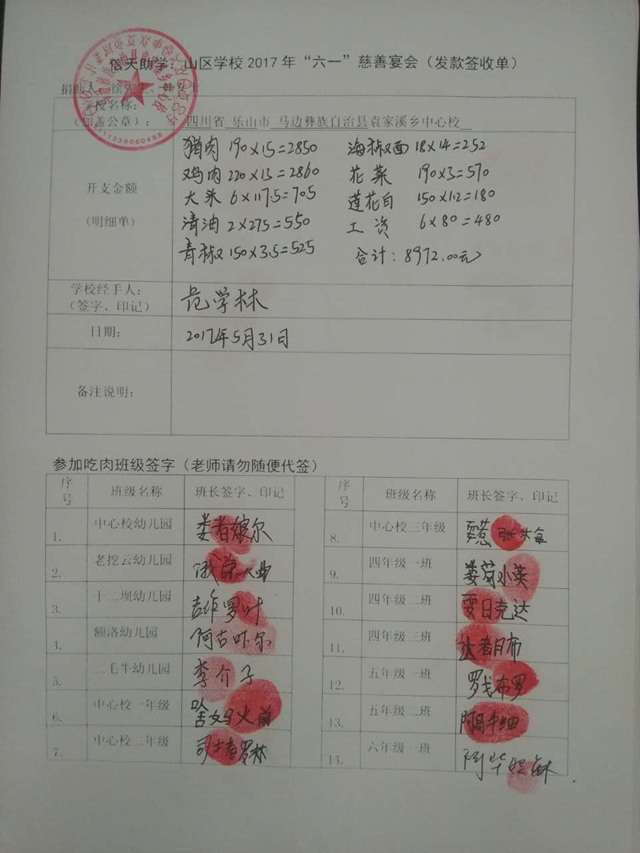 信天助学：山区学校 2017 年“六一”慈善宴会（发款签收单）
捐助人：
学校名称：
（加盖公章）： 四川省 乐山市 马边彝族自治县袁家溪乡中心校
开支金额
（明细单）
猪肉 190×15=2850 海椒面 18×14=252
鸡肉 220×13=2860 花菜 190×3=570
大米 6×117.5=705 莲花白 150×1.2=180
清油 2×275=550 工资 6×80=480
青椒 150×3.5=525 合计：8972.00元
学校经手人：
（签字、印记） 范学林
日期： 2017年5月31日
备注说明：
参加吃肉班级签字（老师请勿随便代签）
序号 班级名称 班长签字、印记 序号 班级名称 班长签字、印记
1. 中心校幼儿园 8. 中心校三年级
2. 老挖云幼儿园 9. 四年级一班
3. 十二坝幼儿园 吉作罗叶 10. 四年级二班
4. 额洛幼儿园 阿古吓尔 11. 四年级三班
5. 二毛牛幼儿园 李介子 12. 五年级一班 罗戈布罗
6. 中心校一年级 13. 五年级二班
7. 中心校二年级 14. 六年级一班